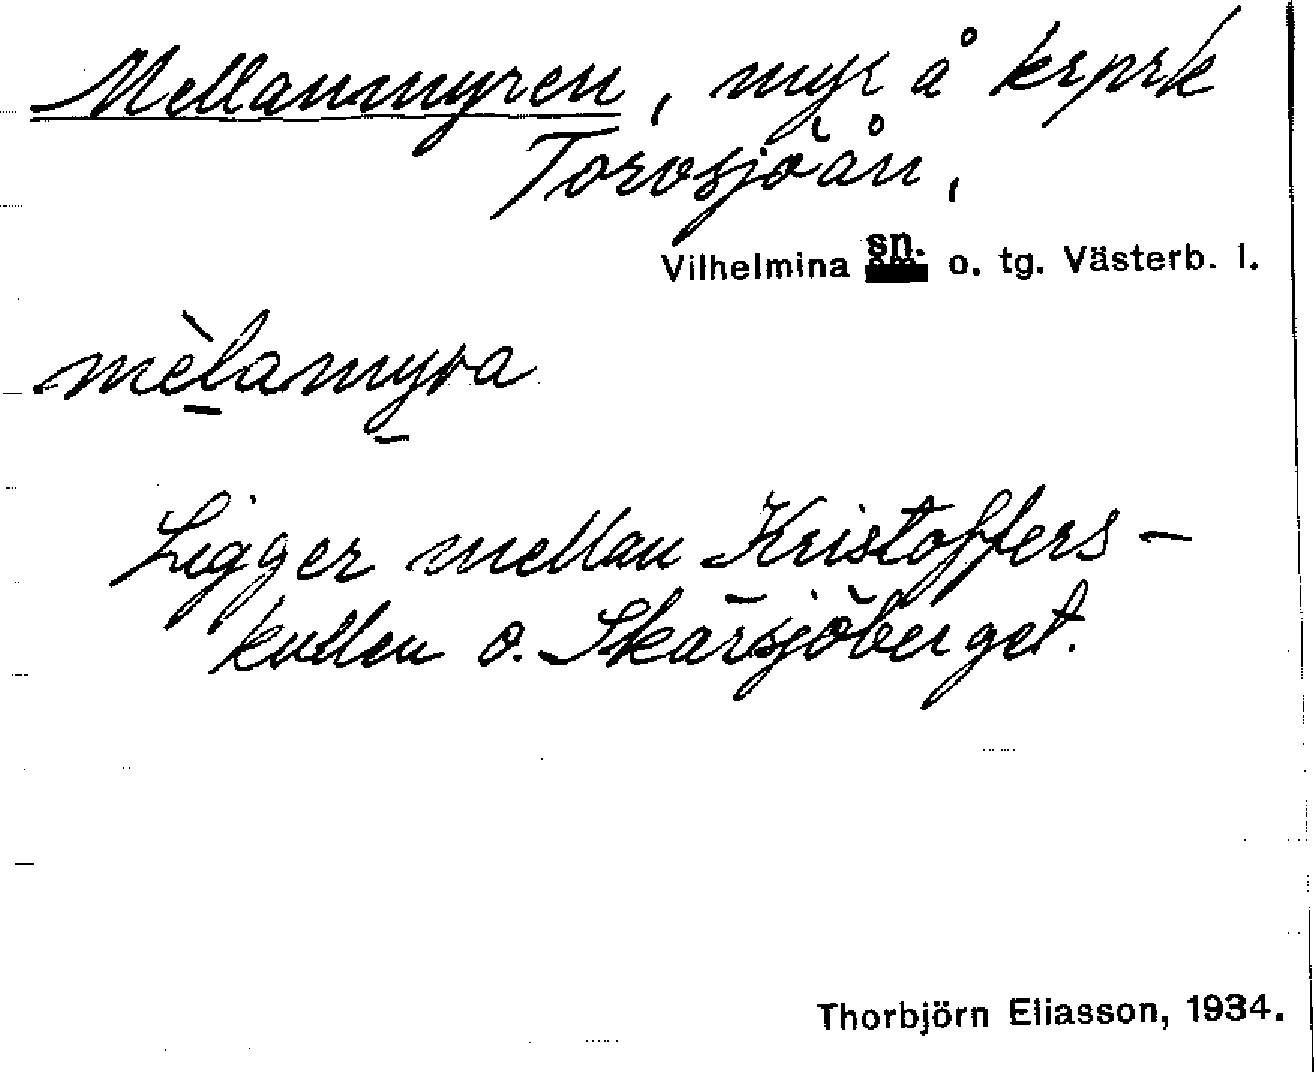 Mellanmyren, myr å krprk
Torvsjöån,
Vilhelmina sn. o. tg. Västerb. l.
mèlamyra
Ligger mellan Kristoffers-
kullen o. Skärsjöberget.
Thorbjörn Eliasson, 1934.